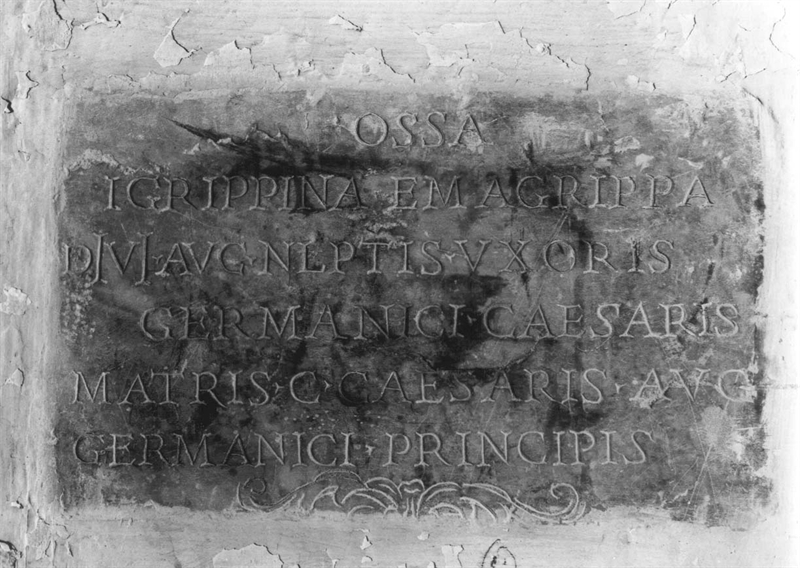 OSSA
IGRIPPINA EM AGRIPPA
DIVI·AVG·NLPTIS·VXORIS
GERMANICI·CAESARIS
MATRIS·C·CAESARIS·AVG
GERMANICI·PRINCIPIS